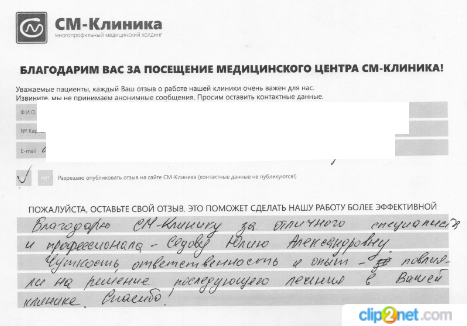 СМ-Клиника
многопрофильный медицинский холдинг
БЛАГОДАРИМ ВАС ЗА ПОСЕЩЕНИЕ МЕДИЦИНСКОГО ЦЕНТРА СМ-КЛИНИКА!
Уважаемые пациенты, каждый Ваш отзыв о работе нашей клиники очень важен для нас.
Извините, мы не принимаем анонимные сообщения. Просим оставить контактные данные.
Ф.И.О.
№ Кар
E-mail
Разрешаю опубликовать отзыв на сайте СМ-Клиника (контактные данные не публикуются)
ПОЖАЛУЙСТА, ОСТАВЬТЕ СВОЙ ОТЗЫВ. ЭТО ПОМОЖЕТ СДЕЛАТЬ НАШУ РАБОТУ БОЛЕЕ ЭФФЕКТИВНОЙ
Благодарю СМ-Клинику за отличного специалиста
и профессионала - Седову Юлию Александровну.
Чуткость, ответственность и опыт - повлия-
ли на решение последующего лечения в Вашей
клинике. Спасибо!
clip2net.com